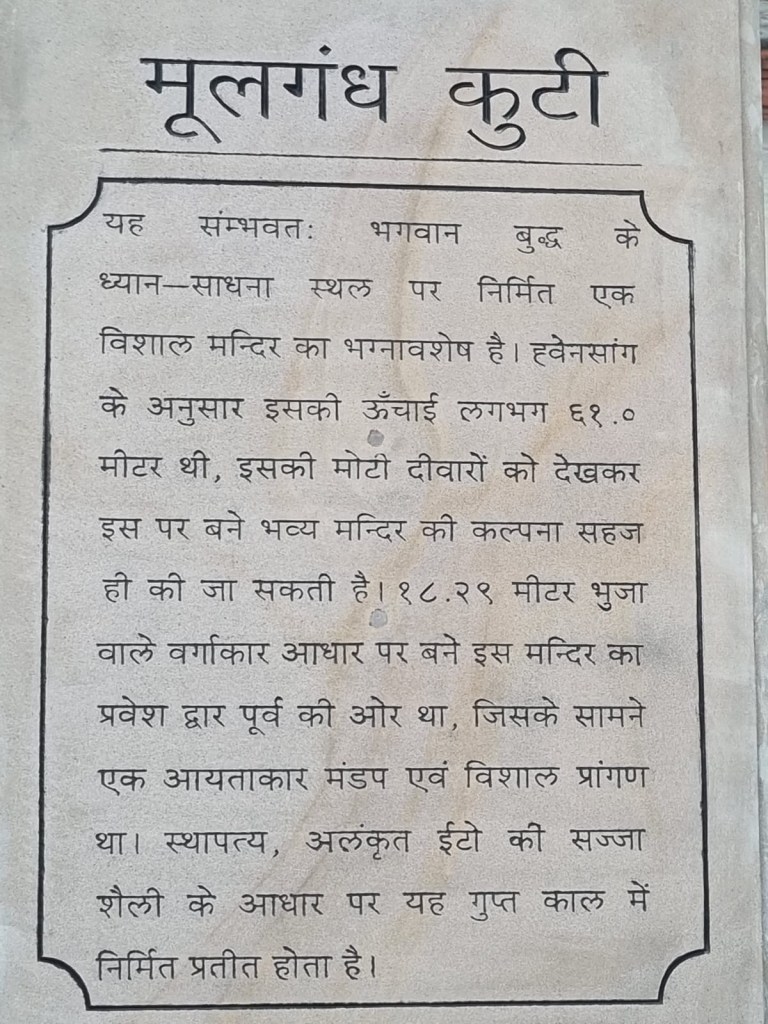 मूलगंध कुटी
यह संम्भवतः भगवान बुद्ध के
ध्यान–साधना स्थल पर निर्मित एक
विशाल मन्दिर का भग्नावशेष है। ह्वेनसांग
के अनुसार इसकी ऊँचाई लगभग ६१.०
मीटर थी, इसकी मोटी दीवारों को देखकर
इस पर बने भव्य मन्दिर की कल्पना सहज
ही की जा सकती है। १८.२९ मीटर भुजा
वाले वर्गाकार आधार पर बने इस मन्दिर का
प्रवेश द्वार पूर्व की ओर था, जिसके सामने
एक आयताकार मंडप एवं विशाल प्रांगण
था। स्थापत्य, अलंकृत ईटो की सज्जा
शैली के आधार पर यह गुप्त काल में
निर्मित प्रतीत होता है।